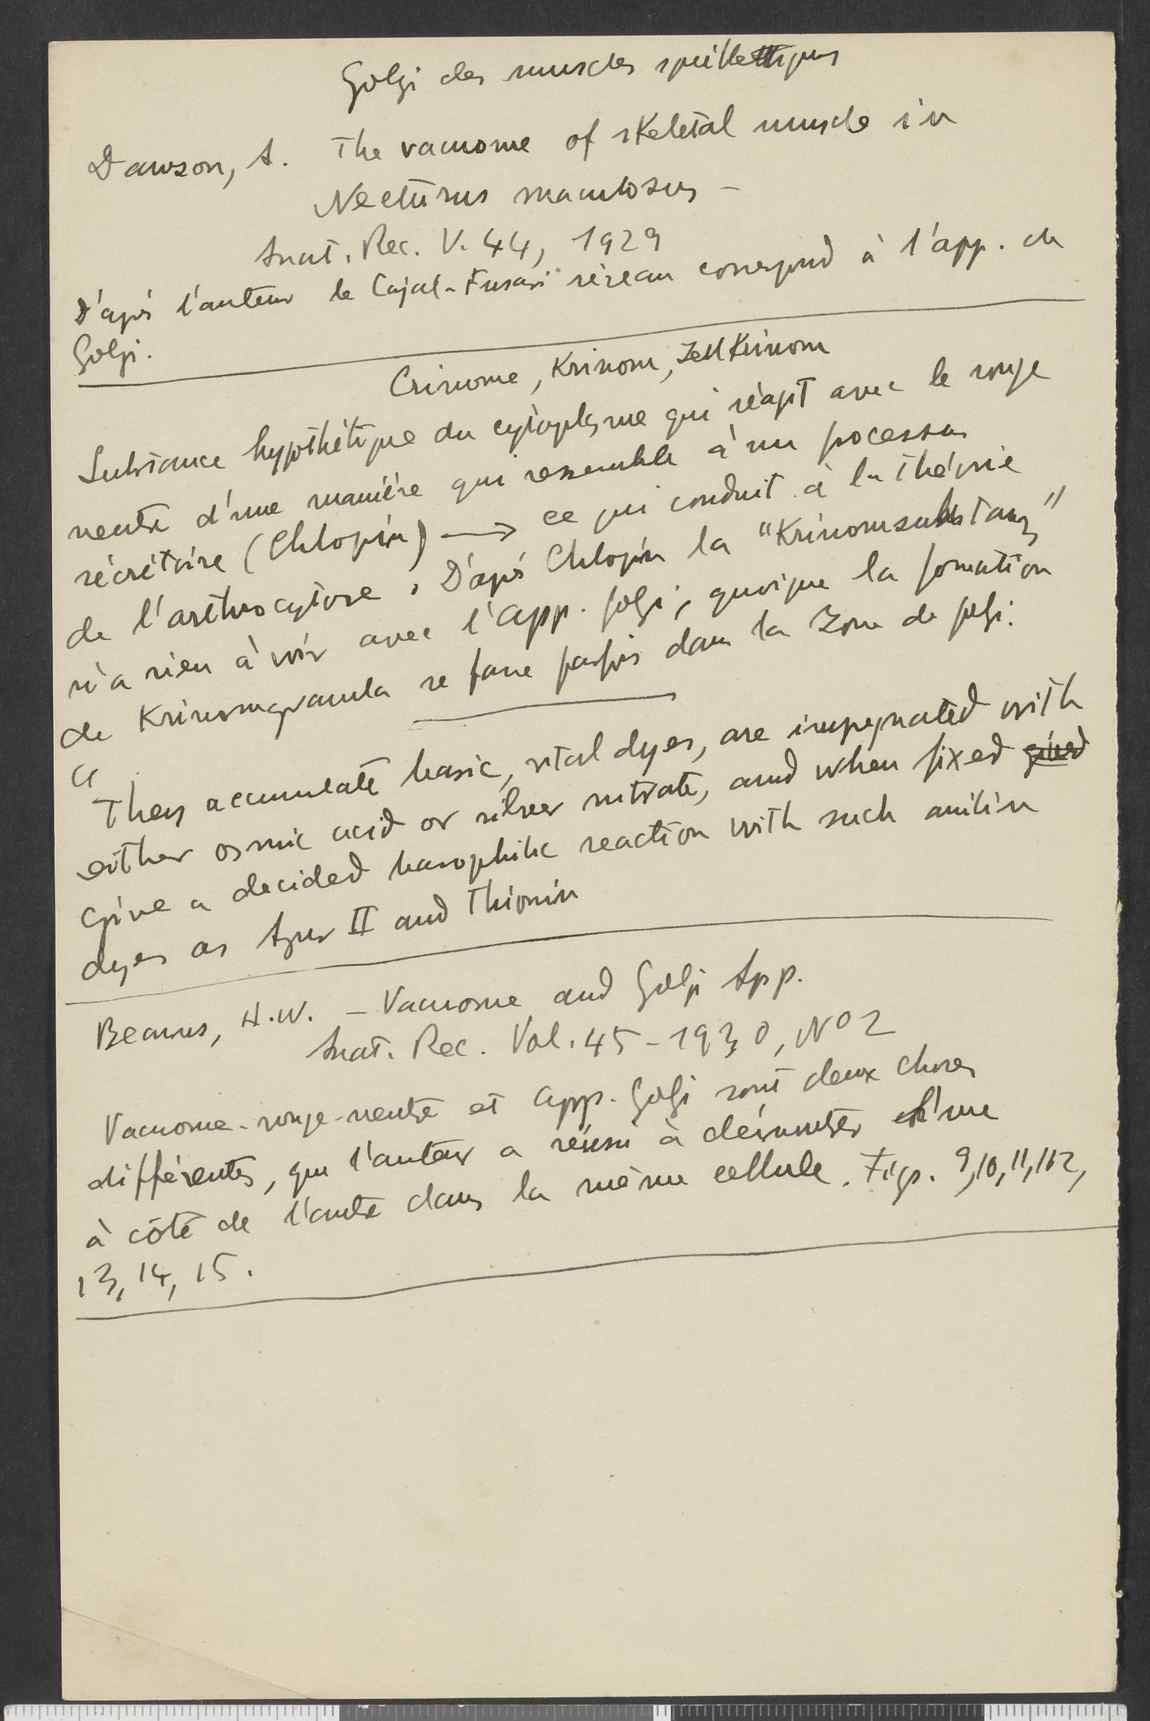 Golgi des muscles squelettiques
Dawson, A. The vacuome of skeletal muscle in
Necturus maculosus –
Anat. Rec. V. 44, 1929
D'après l'auteur le Cajal-Fusari réseau correspond à l'app. de
Golgi.
Crinome, Krinom, ZellKrinom
Substance hypothétique du cytoplasme qui réagit avec le rouge
neutre d'une manière qui ressemble à un processus
sécrétoire (Chlopin) → ce qui conduit à la théorie
de l'arthrocytose. D'après Chlopin la "Krinomsubstanz"
n'a rien à voir avec l'app. Golgi, quoique la formation
de Krinomgranula se fasse parfois dans la zone de Golgi.
"They accumulate basic, vital dyes, are impregnated with
either osmic acid or silver nitrate, and when fixed
give a decided basophilic reaction with such anilin
dyes as Azur II and Thionin
Beams, H.W. – Vacuome and Golgi App.
Anat. Rec. Vol. 45 – 1930, No 2
Vacuome-rouge-neutre et app. Golgi sont deux choses
différentes, que l'auteur a réussi à démontrer l'une
à côté de l'autre dans la même cellule. Figs. 9, 10, 11, 12,
13, 14, 15.